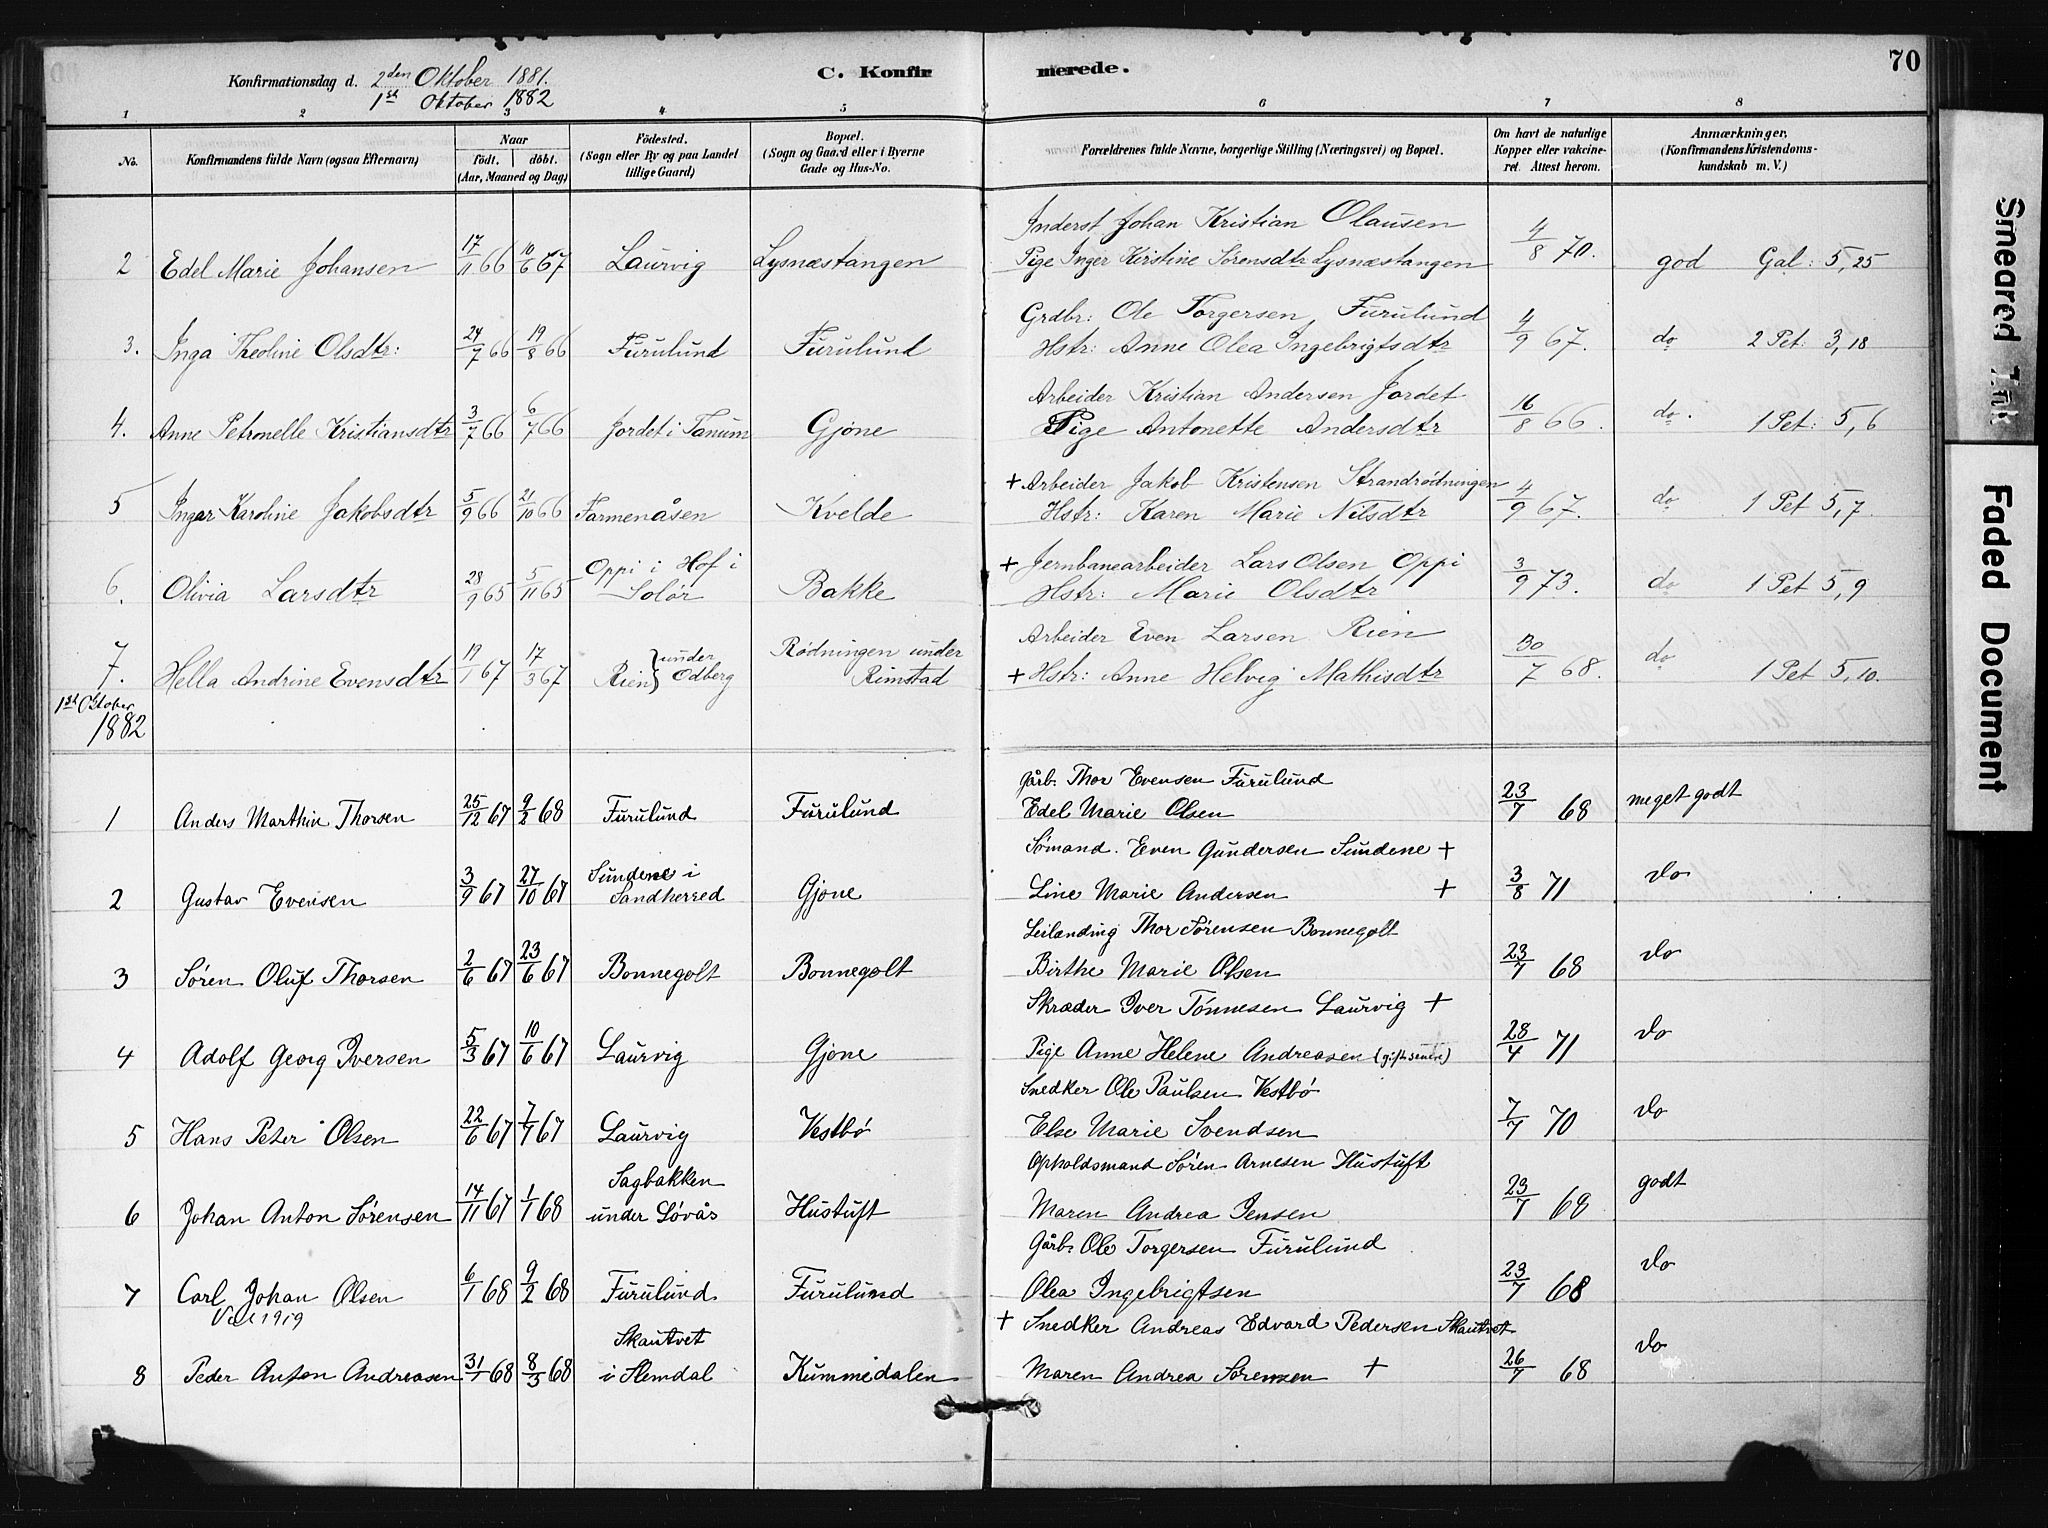 Konfirmationsdag d. 2den Oktober 1881.
1st Oktober 1882
C. Konfirmerede.
70
1 2 3 4 5 6 7 8
No.
Konfirmandens fulde Navn (ogsaa Efternavn)
Naar
født. døbt.
(Aar, Maaned og Dag)
Fødested.
(Sogn eller By og paa Landet
tillige Gaard)
Bopæl.
(Sogn og Gaard eller i Byerne
Gade og Hus-No.
Forældrenes fulde Navne, borgerlige Stilling (Næringsvei) og Bopæl.
Om havt de naturlige
Kopper eller vakcine-
ret. Attest herom.
Anmærkninger,
(Konfirmandens Kristendoms-
kundskab m. V.)
Inderst Johan Kristian Olausen
2 Edel Marie Johansen 17/11 66 10/6 67 Laurvig Lysnæstangen Pige Inger Kirstine Sørensdtr Lysnæstangen 4/8 70. god Gal: 5,25
Grdbr: Ole Torgersen Furulund
3. Inga Theoline Olsdtr: 24/7 66 19/8 66 Furulund Furulund Hstr: Anne Olea Ingebrigtsdtr 4/9 67. do 2 Pet: 3,18
Arbeider Kristian Andersen Jordet
4. Anne Petronelle Kristiansdtr 3/7 66 6/7 66 Jordet i Tanum Gjone Pige Antonette Andersdtr 16/8 66. do. 1 Pet: 5,6
+ Arbeider Jakob Kristensen Strandrødningen
5 Inger Karoline Jakobsdtr 5/9 66 21/10 66 Farmenåsen Kvelde Hstr: Karen Marie Nilsdtr 4/9 67. do 1 Pet 5,7.
Oppi i Hof i + Jernbanearbeider Lars Olsen Oppi
6. Olivia Larsdtr 28/9 65 5/11 65 Solør Bakke Hstr: Marie Olsdtr 3/9 73. do 1 Pet 5,9
under Rødningen under Arbeider Even Larsen Rien
7. Hella Andrine Evensdtr 19/1 67 17/3 67 Rien Odberg Rimstad + Hstr: Anne Helvig Mathisdtr 30/7 68. do 1 Pet 5,10.
1st Oktober
1882
Gårb. Thor Evensen Furulund
1 Anders Marthin Thorsen 25/12 67 9/2 68 Furulund Furulund Edel Marie Olsen 23/7 68 meget godt
Sundene i Sømand. Even Gundersen Sundene +
2 Gustav Evensen 3/9 67 27/10 67 Sandherred Gjone Line Marie Andersen + 3/8 71 do
Leilending Thor Sørensen Bonnegolt
3 Søren Oluf Thorsen 2/6 67 23/6 67 Bonnegolt Bonnegolt Birthe Marie Olsen 23/7 68 do
Skræder Iver Tønnesen Laurvig +
4 Adolf Georg Iversen 5/3 67 10/6 67 Laurvig Gjone Pige Anne Helene Andreasen (gift senere) 28/4 71 do
Snedker Ole Paulsen Vestbö
5 Hans Peter Olsen 22/6 67 7/7 67 Laurvig Vestbö Else Marie Svendsen 7/7 70 do
Sagbakken Opholdsmand Søren Arnesen Hustuft
6 Johan Anton Sørensen 14/11 67 1/1 68 under Løvås Hustuft Maren Andrea Jensen 23/7 68 godt
Gårb. Ole Torgersen Furulund
7 Carl Johan Olsen 6/1 68 9/2 68 Furulund Furulund Olea Ingebrigtsen 23/7 68 do
1919
Skautvet + Snedker Andreas Edvard Pedersen Skautvet
8 Peder Anton Andreasen 31/1 68 8/3 68 i Hemdal Kummedalen Maren Andrea Sørensen + 26/7 68 do
Smeared Ink
Faded Document